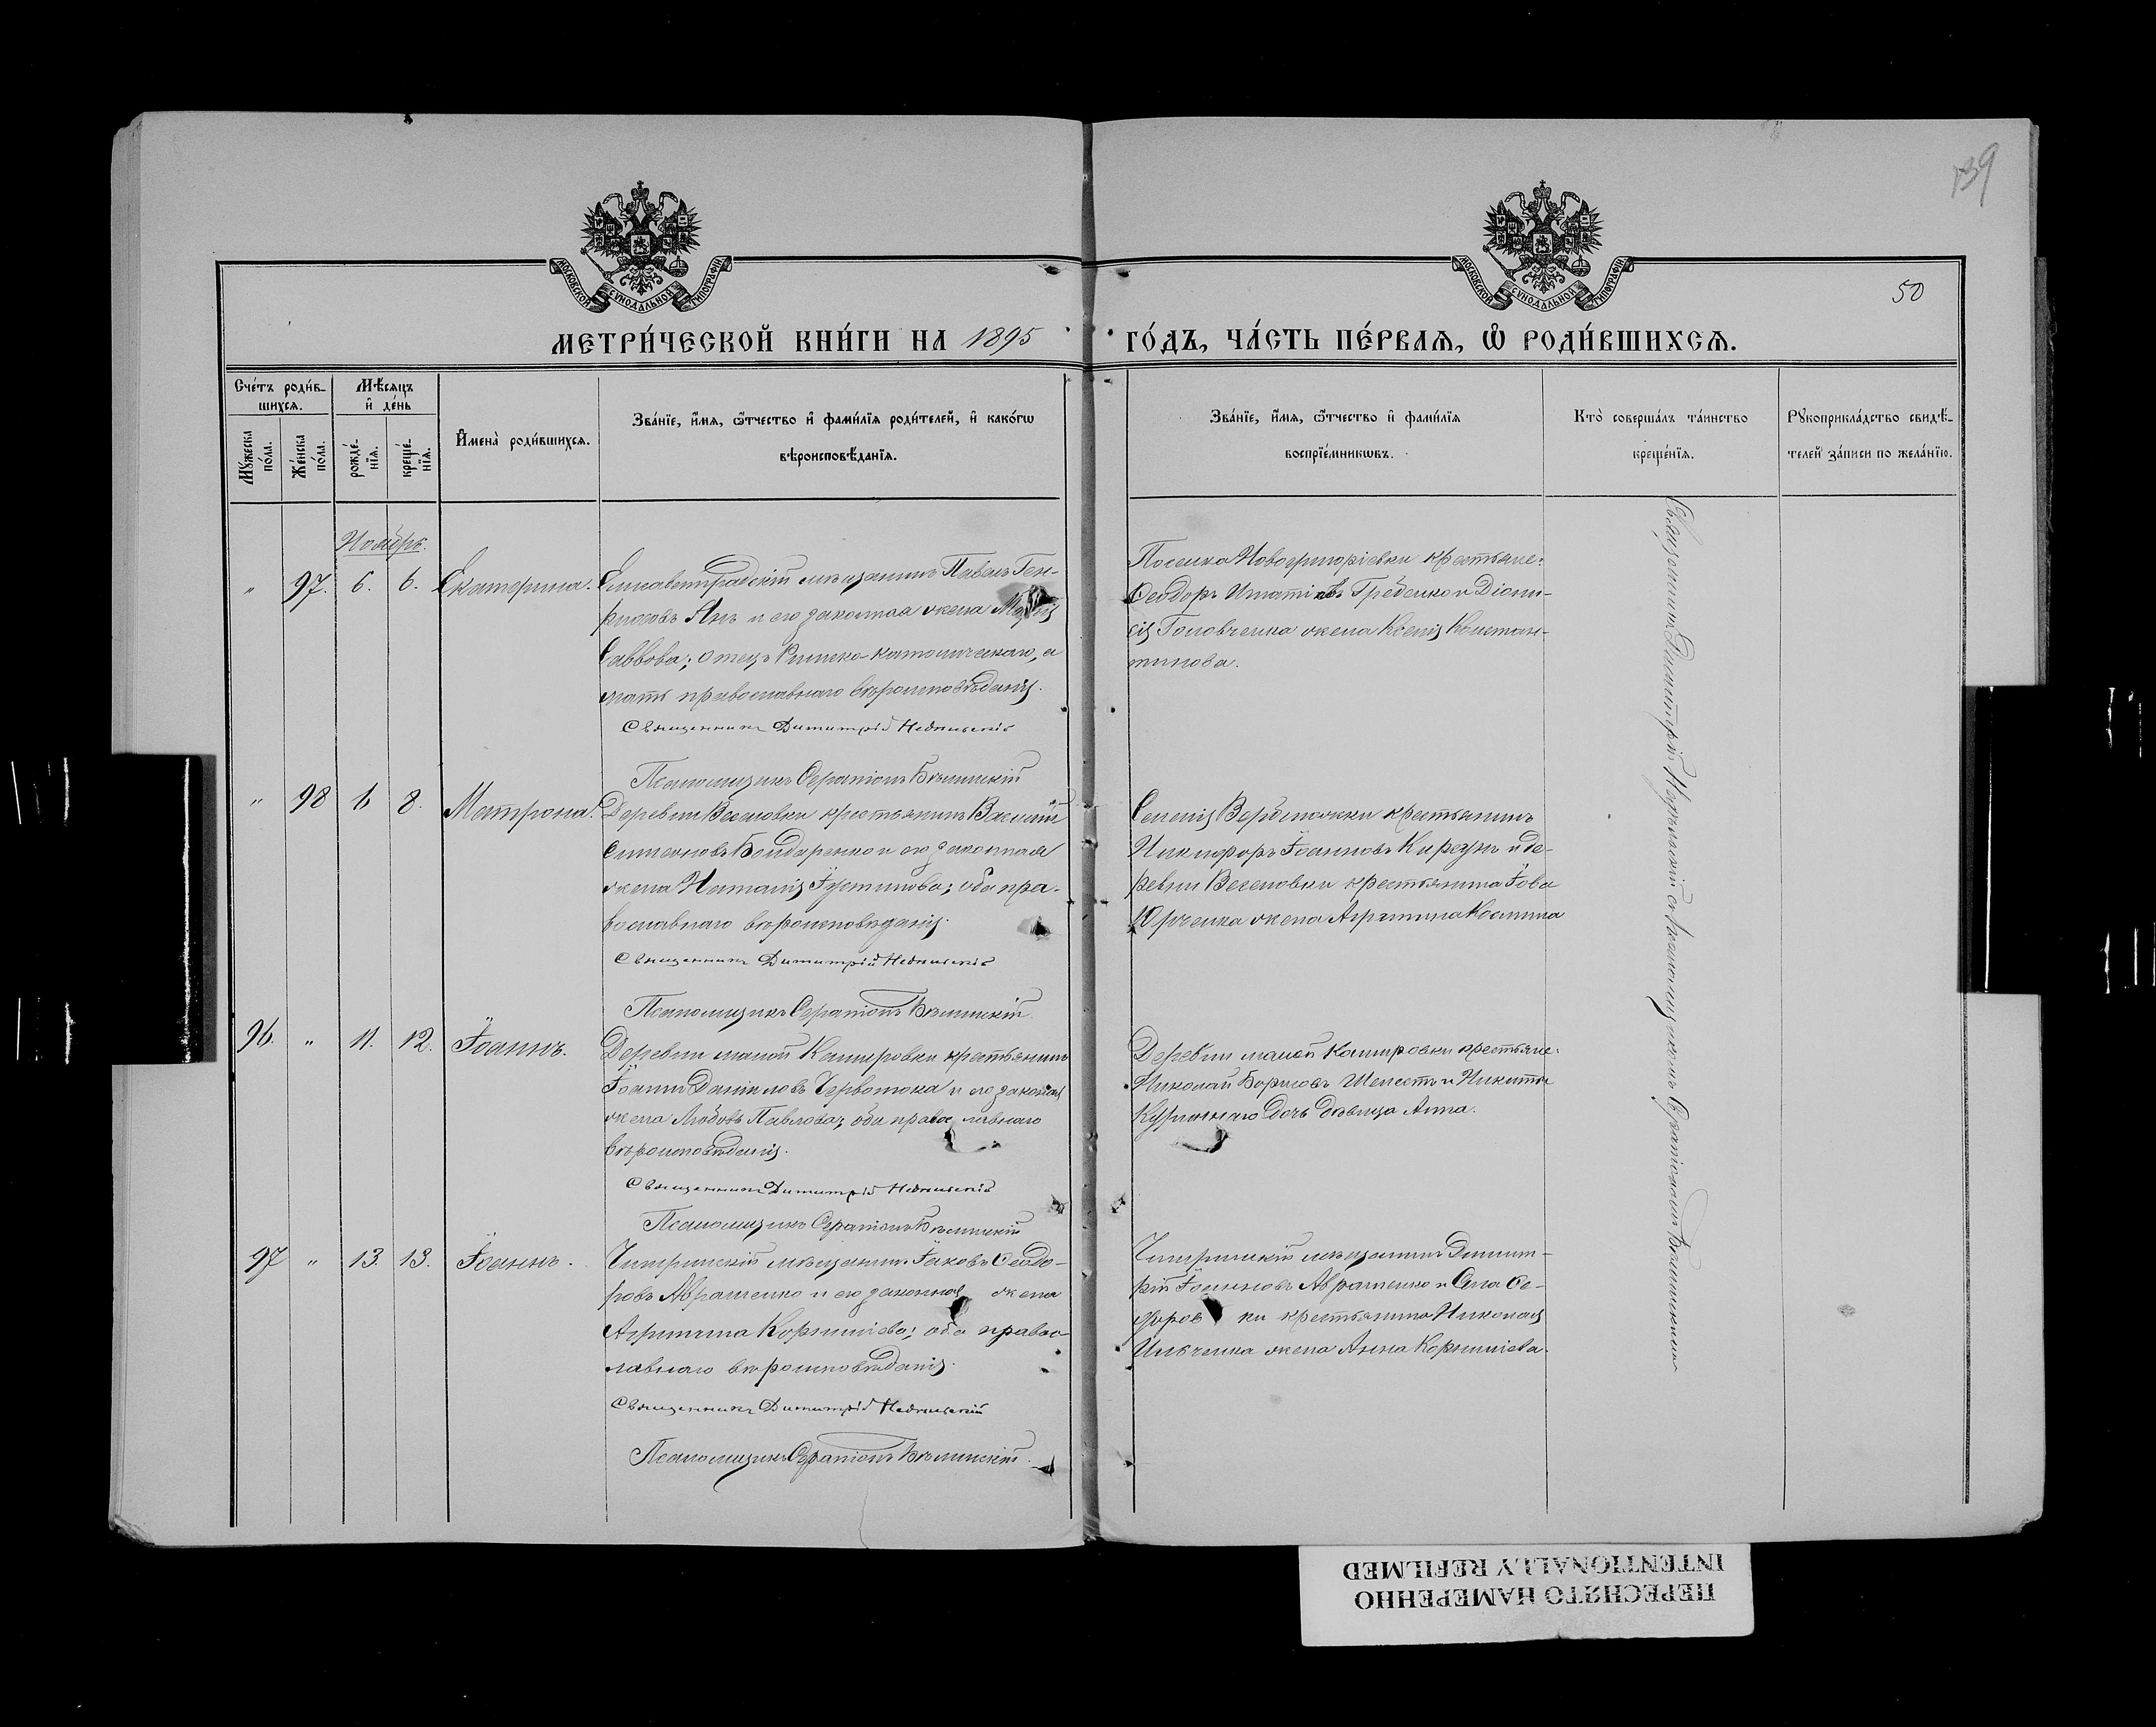 139
50
МОСКОВСКОЙ СѴНОДАЛЬНОЙ ТИПОГРАФІИ
МОСКОВСКОЙ СѴНОДАЛЬНОЙ ТИПОГРАФІИ
МЕТРИ́ЧЕСКОЙ КНИ́ГИ НА 1895 ГО́ДЪ, ЧА́СТЬ ПЕ́РВАѦ, Ѡ҆ РОДИ́ВШИХСѦ.
Сче́тъ роди́в-
шихсѧ.
Мꙋ́жеска по́ла.
Же́нска по́ла.
Мѣ́сѧцъ
и҆ де́нь
рожде́-
нїѧ.
креще́-
нїѧ.
И҆мена̀ роди́вшихсѧ.
Зва́нїе, и҆́мѧ, ѻ҆́тчество и҆ фами́лїѧ роди́телей, и҆ како́гѡ
вѣроисповѣ́данїѧ.
Зва́нїе, и҆́мѧ, ѻ҆́тчество и҆ фами́лїѧ
воспрїе́мникѡвъ.
Кто̀ соверша́лъ та́инство
креще́нїѧ.
Рꙋкоприкла́дство свидѣ́-
телей за́писи по жела́нїю.
Ноябрь.
" 97. 6. 6. Екатерина.
Елисаветградскій мѣщанинъ Павелъ Ген-
риховъ Янъ и его законная жена Марія
Саввова; отецъ Римско-католическаго, а
мать православнаго вѣроисповѣданія.
Священникъ Димитрій Недѣльскій
Псаломщикъ Серапіонъ Бѣлинскій
Поселка Новогригоріевки крестьяне:
Ѳеодоръ Игнатіевъ Гребенко и Діони-
сія Головченка жена Ксенія Констан-
тинова.
" 98 6 8. Матрона.
Деревни Веселовки крестьянинъ Василій
Симеоновъ Бондаренко и его законная
жена Наталія Іустинова; оба пра-
вославнаго вѣроисповѣданія.
Священникъ Димитрій Недѣльскій
Псаломщикъ Серапіонъ Бѣлинскій.
Селенія Вербложки крестьянинъ
Никифоръ Іоанновъ и де-
ревни Веселовки крестьянина Іова
Юрченка жена Агрипина Космина
96. " 11. 12. Іоаннъ.
Деревни малой Камировки крестьянинъ
Іоаннъ Даніиловъ Червотока и его законная
жена Любовь Павлова; оба православнаго
вѣроисповѣданія.
Священникъ Димитрій Недѣльскій
Псаломщикъ Серапіонъ Бѣлинскій
Деревни малой Камировки крестьяне:
Николай Борисовъ Шелестъ и Никиты
дочь дѣвица Анна.
97 " 13. 13. Іоаннъ.
Чигиринскій мѣщанинъ Іаковъ Ѳеодо-
ровъ Авраменко и его законная жена
Агрипина Корниліева; оба правос-
лавнаго вѣроисповѣданія.
Священникъ Димитрій Недѣльскій
Псаломщикъ Серапіонъ Бѣлинскій.
Чигиринскій мѣщанинъ Димит-
рій Іоанновъ Авраменко и Села Ѳе-
доровки крестьянина Николая
Ильченка жена Анна Корниліева.
Священникъ Димитрій Недѣльскій съ псаломщикомъ Серапіономъ Бѣлинскимъ
ПЕРЕСНЯТО НАМЕРЕННО
INTENTIONALLY REFILMED